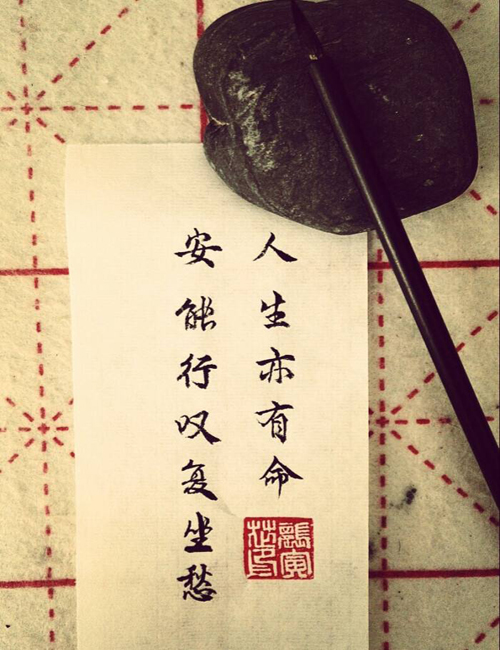 人生亦有命
安能行叹复坐愁